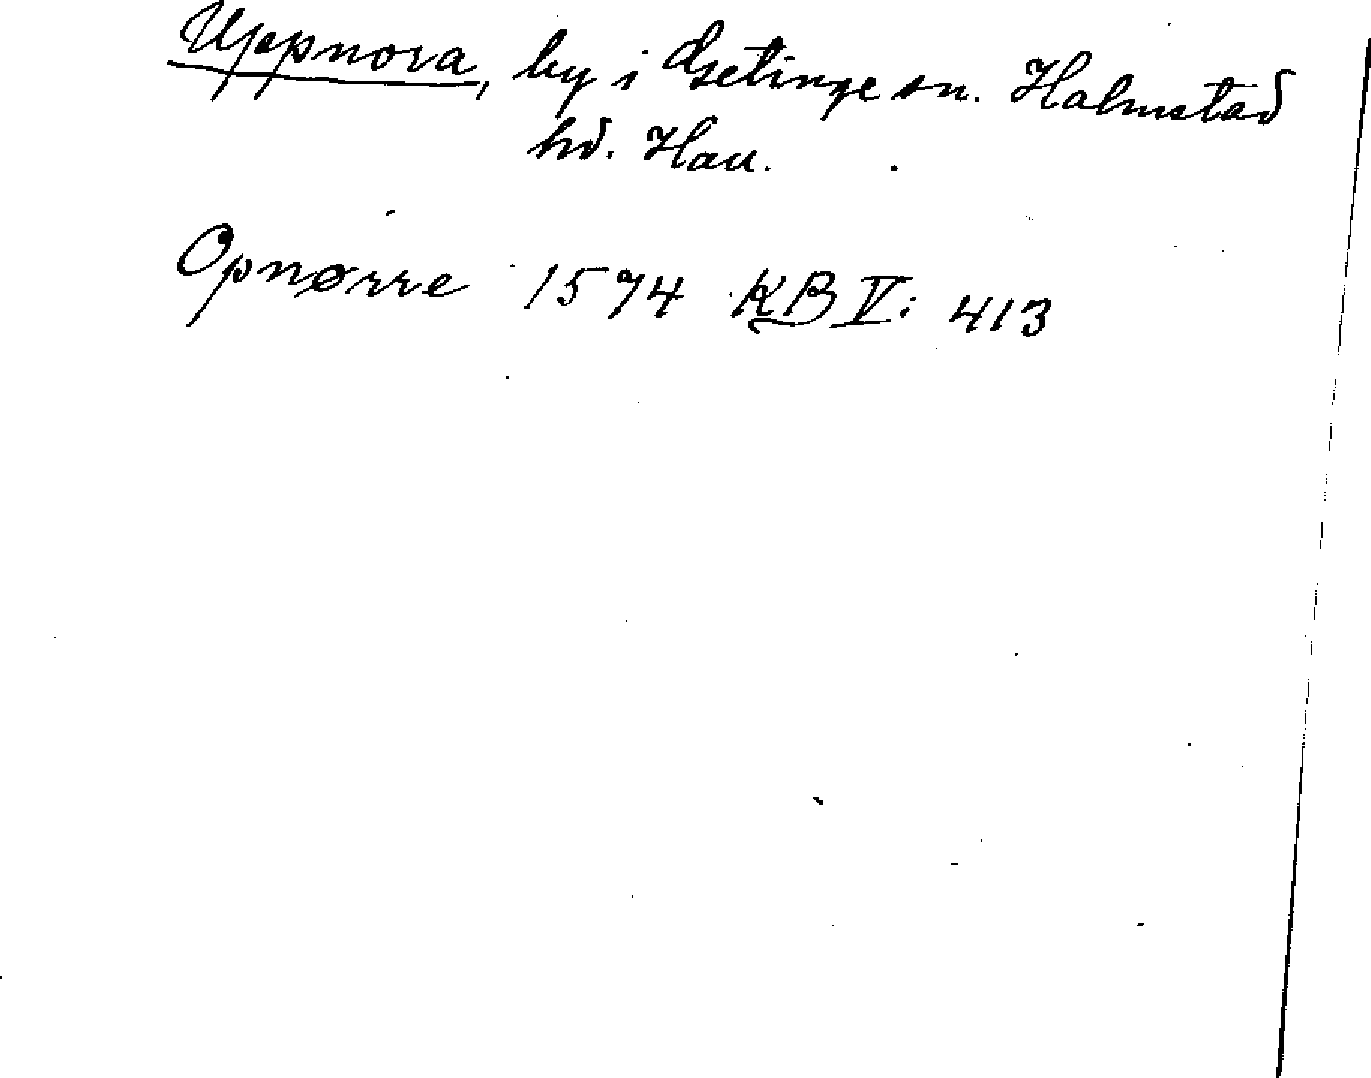 Uppnora, by i Getinge sn. Halmstad
hd. Hall.
Opnørre 1574 KB V: 413